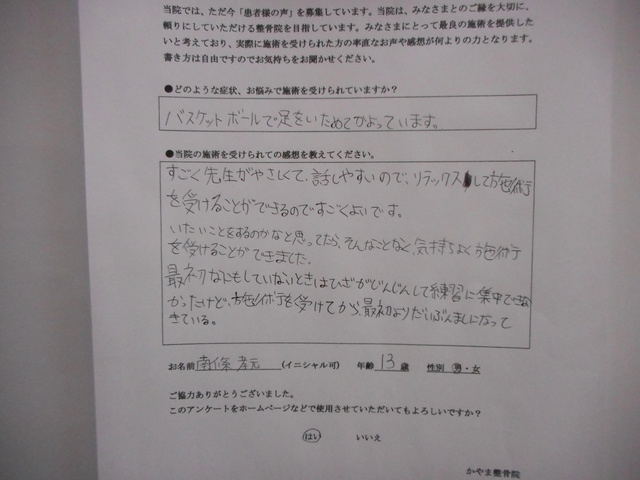 当院では、ただ今「患者様の声」を募集しています。当院は、みなさまとのご縁を大切に、
頼りにしていただける整骨院を目指しています。みなさまにとって最良の施術を提供した
いと考えており、実際に施術を受けられた方の率直なお声や感想が何よりの力となります。
書き方は自由ですのでお気持ちをお聞かせください。
●どのような症状、お悩みで施術を受けられていますか？
バスケットボールで足をいためてかよっています。
●当院の施術を受けられての感想を教えてください。
すごく先生がやさしくて、話しやすいので、リラックスして施術
を受けることができるのですごくよいです。
いたいことをするのかなと思ってたら、そんなことなく、気持ちよく施術
を受けることができました。
最初なにもしていないときはひざがじんじんして練習に集中できな
かったけど、施術を受けてから、最初よりだいぶんましになって
きている。
お名前 南條 孝元 （イニシャル可） 年齢 13 歳 性別 男・女
ご協力ありがとうございました。
このアンケートをホームページなどで使用させていただいてもよろしいですか？
はい いいえ
かやま整骨院